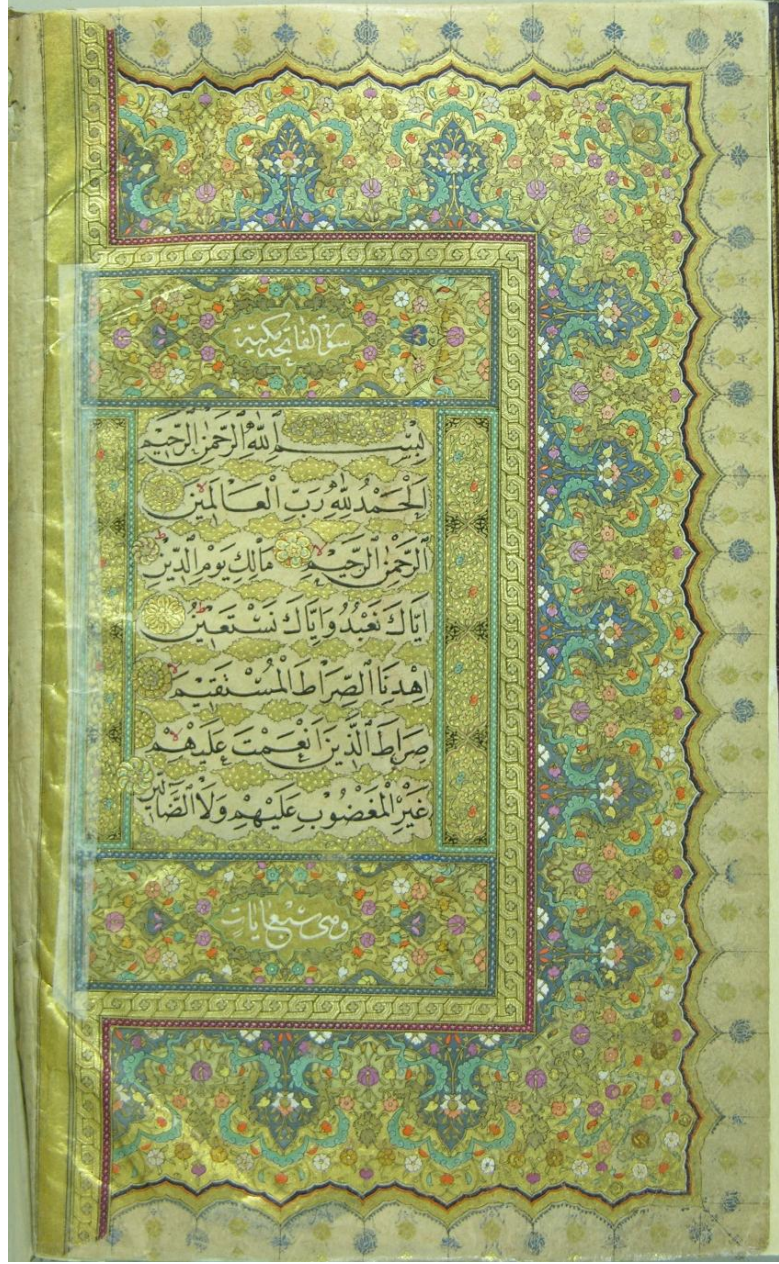 سورة الفاتحة مكية
بِسْمِ ٱللّٰهِ ٱلرَّحْمٰنِ ٱلرَّحِيْمِ
اَلْحَمْدُ لِلّٰهِ رَبِّ الْعَالَمِيْنَ
اَلرَّحْمٰنِ الرَّحِيْمِ مَالِكِ يَوْمِ الدِّيْنِ
اِيَّاكَ نَعْبُدُ وَاِيَّاكَ نَسْتَعِيْنُ
اِهْدِنَا الصِّرَاطَ الْمُسْتَقِيْمَ
صِرَاطَ الَّذِيْنَ اَنْعَمْتَ عَلَيْهِمْ
غَيْرِ الْمَغْضُوْبِ عَلَيْهِمْ وَلَا الضَّآلِّيْنَ
وهى سبع ايات